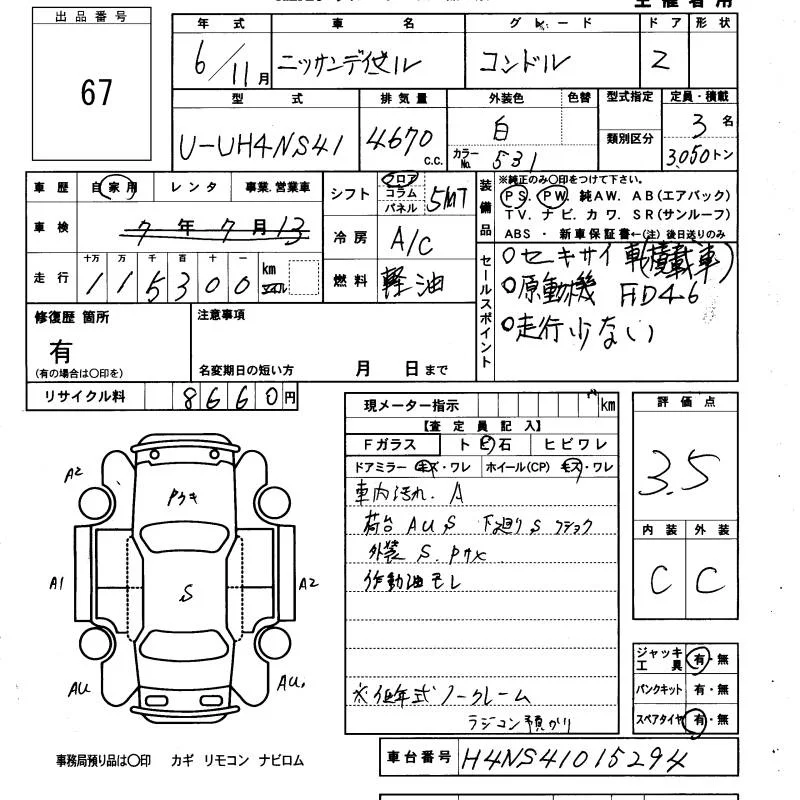 出品番号
67
年式 車名 グレード ドア 形状
6/11月 ニッサンディゼル コンドル 2
型式 排気量 外装色 色替 型式指定 定員・積載
U-UH4NS41 4670 c.c. 白 類別区分 3名
カラーNo. 531 3050トン
車歴 自家用 レンタ 事業.営業車
シフト フロア コラム パネル 5MT
装備品
※純正のみ○印をつけて下さい。
PS. PW. 純AW. AB(エアバック)
TV. ナビ. カワ. SR(サンルーフ)
ABS ・ 新車保証書←(注) 後日送りのみ
車検 7年7月13
冷房 A/C
走行 十万 万 千 百 十 一
115300 km
燃料 軽油
セールスポイント
○セキサイ車(積載車)
○原動機 FD46
○走行少ない
修復歴 箇所
有
(有の場合は○印を)
注意事項
名変期日の短い方 月 日まで
リサイクル料 8660円
現メーター指示 km
【査定員記入】
Fガラス ト ビ 石 ヒビワレ
ドアミラー キズ・ワレ ホイール(CP) キズ・ワレ
車内汚れ. A
荷台 AU S 下廻り S
外装 S.
作動油モレ
※低年式ノークレーム
ラジコン預かり
評価点
3.5
内装 外装
C C
ジャッキ工具 有・無
パンクキット 有・無
スペアタイヤ 有・無
A2
A1
S
A2
AU
AU.
事務局預り品は○印 カギ リモコン ナビロム
車台番号 H4NS41015294